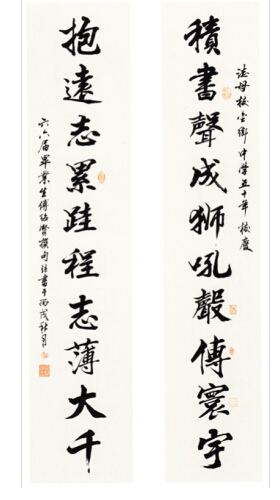 誌母校金鄉中學五十年校慶
積書聲成獅吼聲傳寰宇
抱遠志累跬程志薄大千
六六届畢業生傅紹賢撰句并書于丙戌秋月